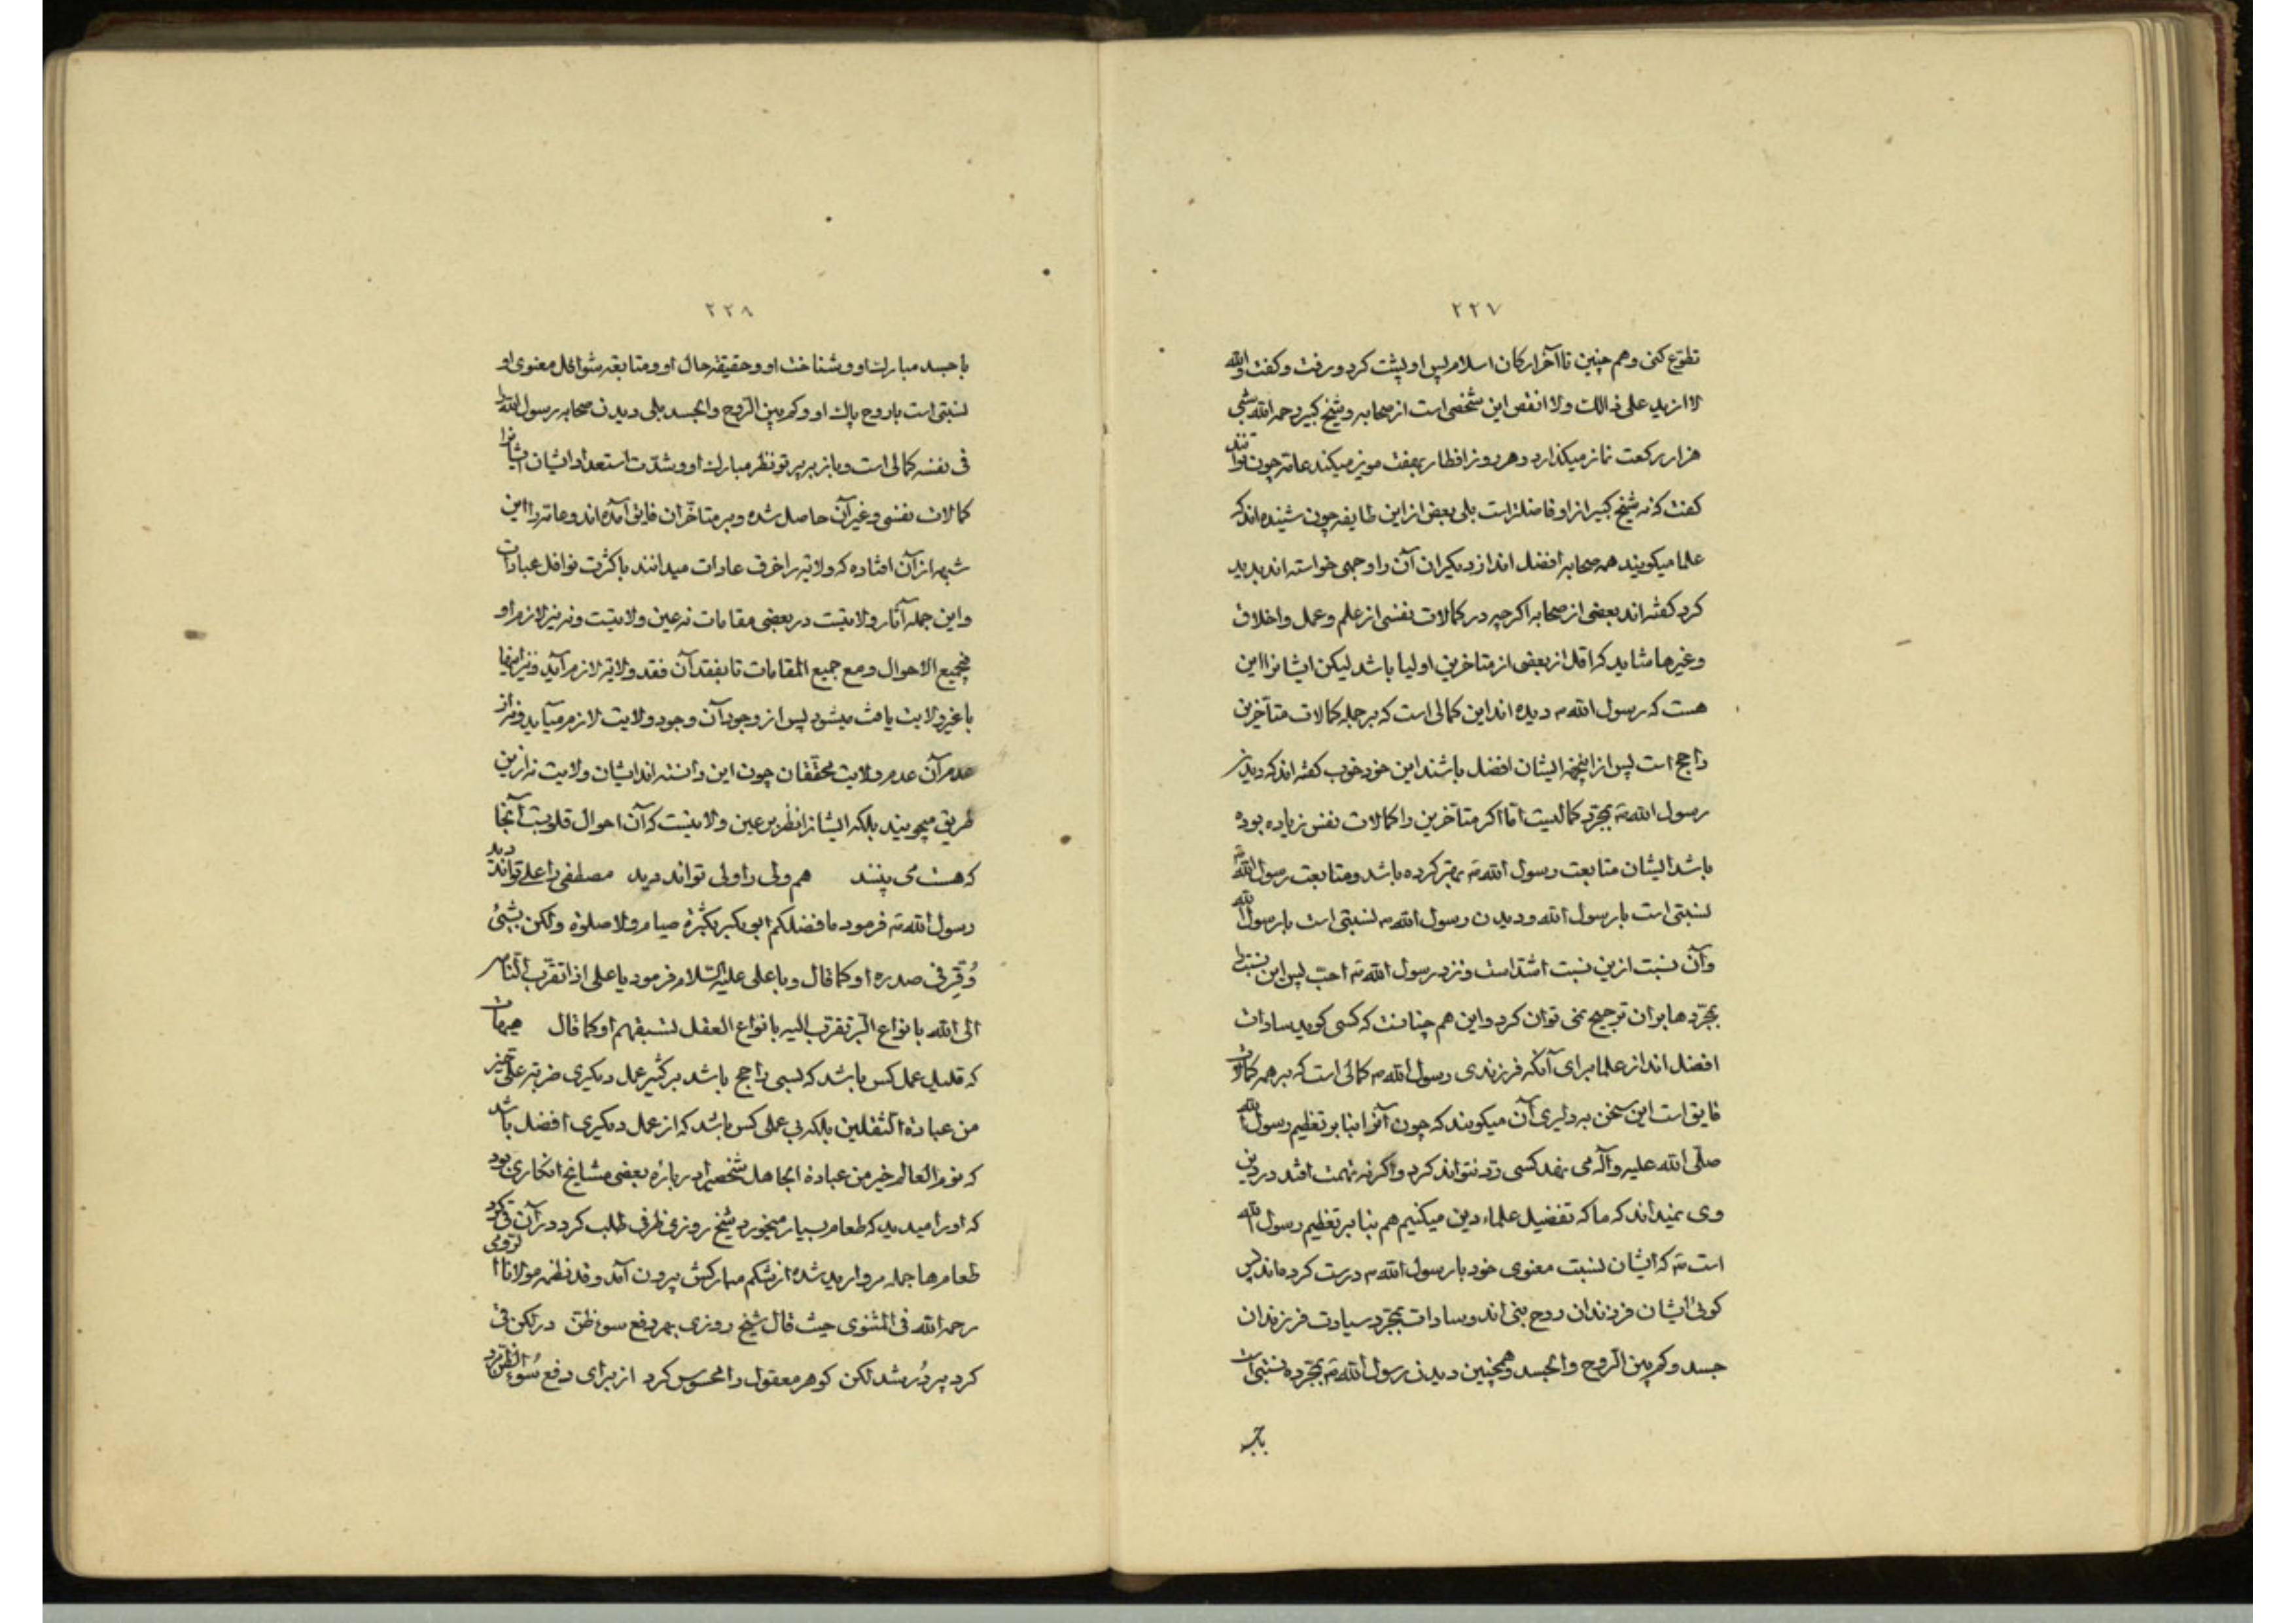 ۲۲۷
تطوّع کنی و هم چنین تا آخر ارکان اسلام پس او پشت کرد و رفت و کفت والله
لا ازید علی ذالک ولا انقص این شخصی است از صحابه و شیخ کبیر رحمه الله شبی
هزار رکعت نماز میکذارد و هر روز افطار بهفت مویز میکند عامه چون توانند
کفت که نه شیخ کبیر از او فاضلتر است بلی بعضی از این طایفه چون شنیده اند که
علما میکویند همه صحابه افضل اند از دیکران آن را وجهی خواسته اند پدید
کرد کفته اند بعضی از صحابه اکرچه در کمالات نفسی از علم و عمل و اخلاق
و غیرها شاید که اقل از بعضی از متاخرین اولیا باشد لیکن ایشانرا این
هست که رسول الله م دیده اند این کمالی است که بر جمله کمالات متأخرین
راجح است پس از اینجهة ایشان افضل باشند این خود خوب کفته اند که دیدن
رسول الله ص بمجرّده کمالیست امّا اکر متأخرین را کمالات نفس زیاده بوده
باشد ایشان متابعت رسول الله ص بهتر کرده باشد و متابعت رسول الله ص
نسبتی است با رسول الله و دیدن رسول الله م نسبتی است با رسول الله
و آن نسبت ازین نسبت اشدّ است و نزد رسول الله ص احبّ پس این نسبت را
بمجرّدها بر آن ترجیح نمی توان کرد و این هم چنانست که کسی کوید سادات
افضل اند از علما برای آنکه فرزندی رسول الله م کمالی است که بر همه کمالات
فایق است این سخن به دلیری آن میکویند که چون آنرا بنا بر تعظیم رسول الله
صلّی الله علیه و آله می نهد کسی ردّ نتواند کرد و اکر نه تهمت افتد در دین
وی نمیداند که ما که تفضیل علماء دین میکنیم هم بنا بر تعظیم رسول الله
است ص که ایشان نسبت معنوی خود با رسول الله م درست کرده اند پس
کوئی ایشان فرزندان روح بنی اند و سادات بمجرّد سیادت فرزندان
جسد و کم بین الروح والجسد و همچنین دیدن رسول الله ص بمجرّده نسبتی است
با جسد
۲۲۸
با جسد مبارک او و شناخت او و حقیقة حال او و متابعة شواغل معنوی او
نسبتی است با روح پاک او و کم بین الروح والجسد بلی دیدن صحابه رسول الله را
فی نفسه کمالی است و باز ببر پرتو نظر مبارک او و شدّت استعداد ایشان ایشانرا
کمالات نفسی و غیر آن حاصل شده و بر متاخّران فایق آمده اند و عامه را این
شبهه از آن افتاده که ولایة را خرق عادات میدانند با کثرت نوافل عبادات
و این جمله آثار ولایتست در بعضی مقامات نه عین ولایتست و نه نیز لازم او
بجمیع الاحوال و مع جمیع المقامات تا بفقد آن فقد ولایة لازم آید و نیز اینها
با غیر ولایت یافت میشود پس از وجود آن وجود ولایت لازم میآید و نه از
عدم آن عدم ولایت محققان چون این دانسته اند ایشان ولایت نه ازین
طریق میجویند بلکه ایشانرا نظر بر عین ولایتست که آن احوال قلوبست آنجا
که هست می بینند هم ولی را ولی تواند دید مصطفی را علی تواند دید
رسول الله ص فرمود ما فضلکم ابو بکر بکثرة صیام ولا صلوة ولکن بشیئ
وُقِرَ فی صدره او کما قال و با علی علیه السّلام فرمود یا علی اذا تقرّب النّاس
الی الله بانواع البرّ تقرّب الیه بانواع العقل تسبقهم او کما قال هیهات
که قلیل عمل کس باشد که بسی راجح باشد بر کثیر عمل دیکری ضربة علی خیر
من عبادة الثقلین بلکه بی عملی کس باشد که از عمل دیکری افضل باشد
که نوم العالم خیر من عبادة الجاهل شخصی را در باره بعضی مشایخ انکاری بود
که او را میدید که طعام بسیار میخورد شیخ روزی ظرفی طلب کرد در آن قی کرد
طعامها جمله مروارید شده از شکم مبارکش بیرون آمد و قد نظمه مولانا الرّومی
رحمه الله فی المثنوی حیث قال شیخ روزی بهر دفع سوء ظن در لکن قی
کرد پر دُر شد لکن کوهر معقول را محسوس کرد از برای دفع سُوء الظن مرد